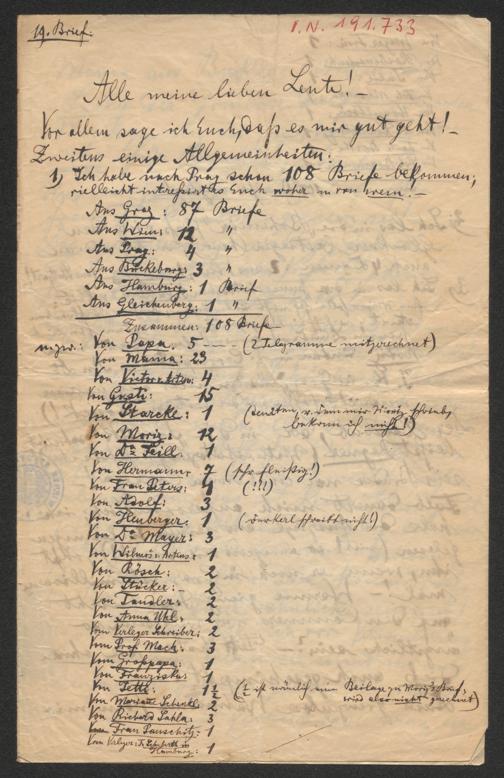 19. Brief.
I.N. 191.733
Alle meine lieben Leute! –
Vor allem sage ich Euch, daß es mir gut geht! –
Zweitens einige Allgemeinheiten:
1) Ich habe nach Prag schon 108 Briefe bekommen;
vielleicht interessirt es Euch woher u. von wem. –
Aus Graz: 87 Briefe
Aus Wien: 12 "
Aus Prag: 4 "
Aus Bückeburg: 3 "
Aus Hamburg: 1 Brief
Aus Gleichenberg: 1 "
Zusammen: 108 Briefe
u. zw.: Von Papa: 5 – – – (2 Telegramme mitgerechnet)
Von Mama: 23
Von 4
Von Gusti: 15
Von Starcke: 1 ( v. dem mir Moriz schrieb,
bekam ich nicht!)
Von Moriz: 12
Von Dr. 1
Von Hermann: 7 (sehr fleißig!)
Von Frau Peters: (!!!)
Von Adolf: 3
Von Heuberger: 1 (der Kerl schreibt nicht!)
Von Dr. Mayer: 3
Von 1
Von Rösch: 2
Von Stücker: 2
Von Tandler: 2
Von Anna Uhl: 2
Vom Verleger Schreiber: 2
Von Prof. Mach: 3
Von Grosspapa: 1
Von Franziska: 1
Von Tetti: 1½ (½ ist nämlich eine Beilage zu Moriz's Brief,
wird also nicht gerechnet)
Von Marianne 2
Von Richard Sahla: 3
Von Frau 1
Vom Verleger: in
Hamburg: 1